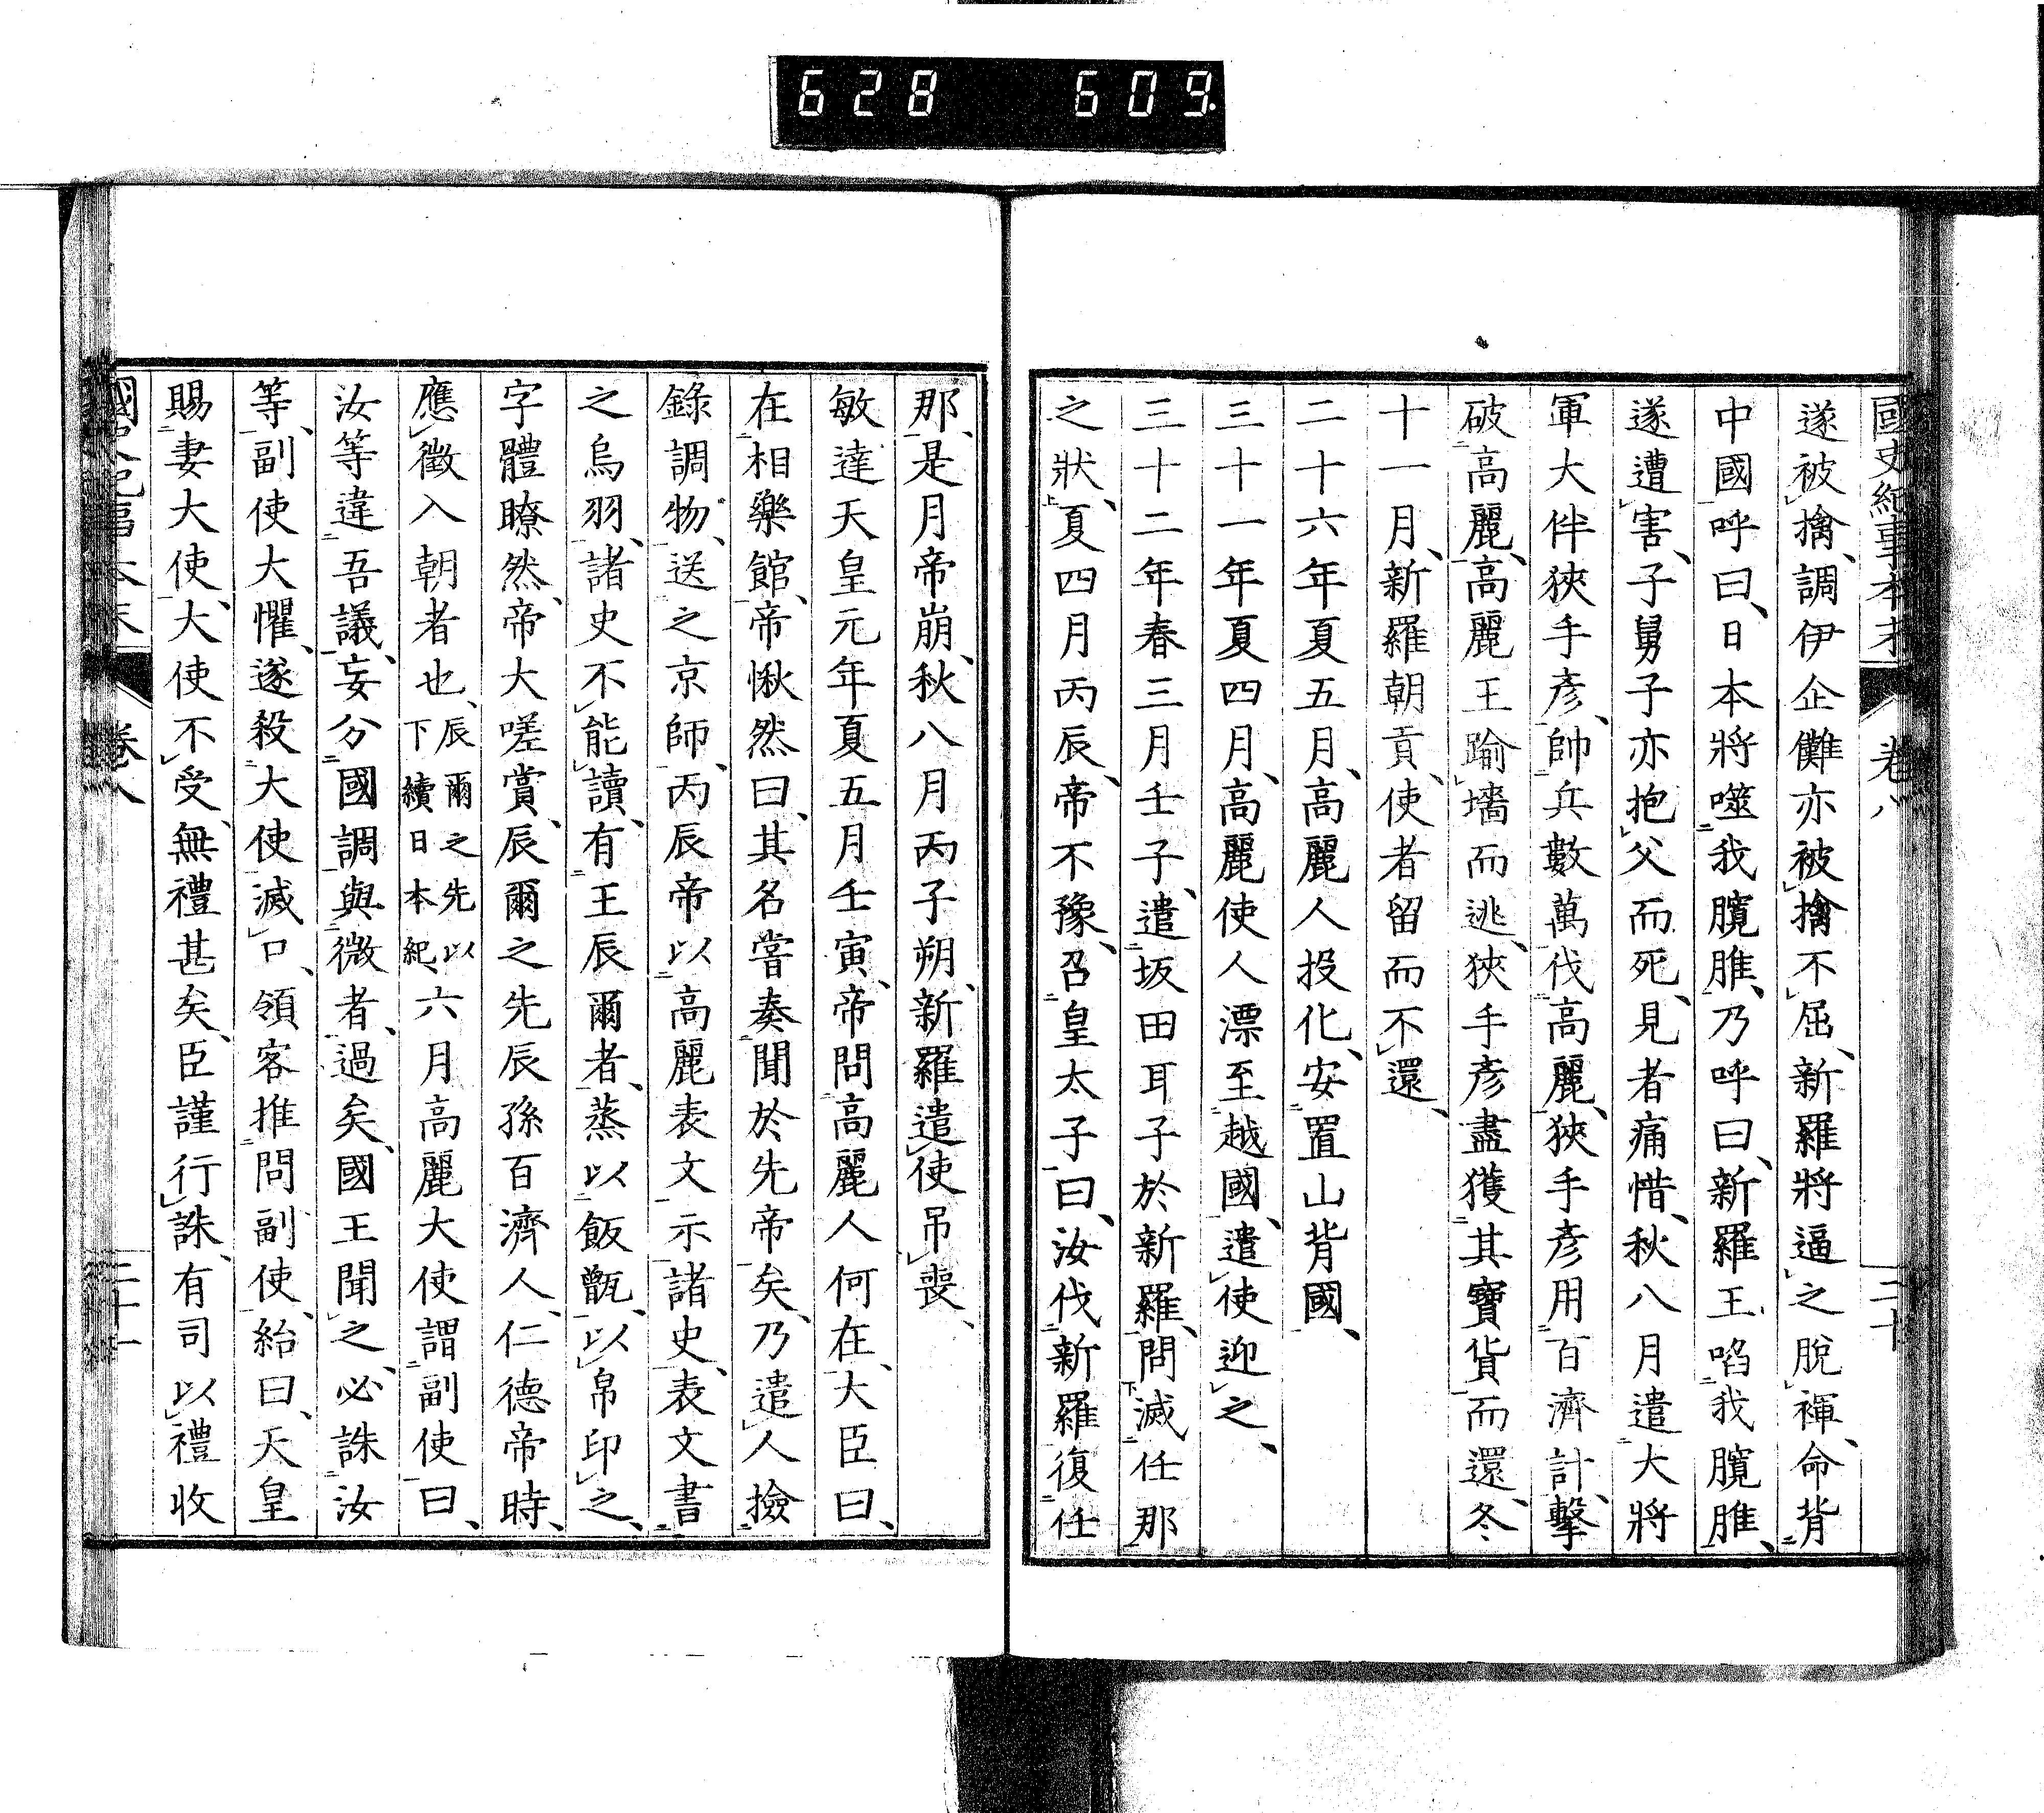 628 609
國史紀事本末 卷八 二十
遂被擒、調伊企儺亦被擒不屈、新羅將逼之脫褌、命背
中國呼曰、日本將噬我臗脽、乃呼曰、新羅王啗我臗脽、
遂遭害、子舅子亦抱父而死、見者痛惜、秋八月遣大將
軍大伴狹手彥、帥兵數萬伐高麗、狹手彥用百濟計、擊
破高麗、高麗王踰墻而逃、狹手彥盡獲其寶貨而還、冬
十一月、新羅朝貢、使者留而不還、
二十六年夏五月、高麗人投化、安置山背國、
三十一年夏四月、高麗使人漂至越國、遣使迎之、
三十二年春三月壬子、遣坂田耳子於新羅、問滅任那
之狀、夏四月丙辰、帝不豫、召皇太子曰、汝伐新羅復任
那、是月帝崩、秋八月丙子朔、新羅遣使吊喪、
敏達天皇元年夏五月壬寅、帝問高麗人何在、大臣曰、
在相樂館、帝愀然曰、其名嘗奏聞於先帝矣、乃遣人撿
錄調物、送之京師、丙辰帝以高麗表文示諸史、表文書
之烏羽、諸史不能讀、有王辰爾者、蒸以飯甑、以帛印之、
字體瞭然、帝大嗟賞、辰爾之先辰孫百濟人、仁德帝時、
應徵入朝者也、辰爾之先以下續日本紀、六月高麗大使謂副使曰、
汝等違吾議、妄分國調與微者、過矣、國王聞之、必誅汝
等、副使大懼、遂殺大使滅口、領客推問副使、紿曰、天皇
賜妻大使、大使不受、無禮甚矣、臣謹行誅、有司以禮收
國史紀事本末 卷八 二十一